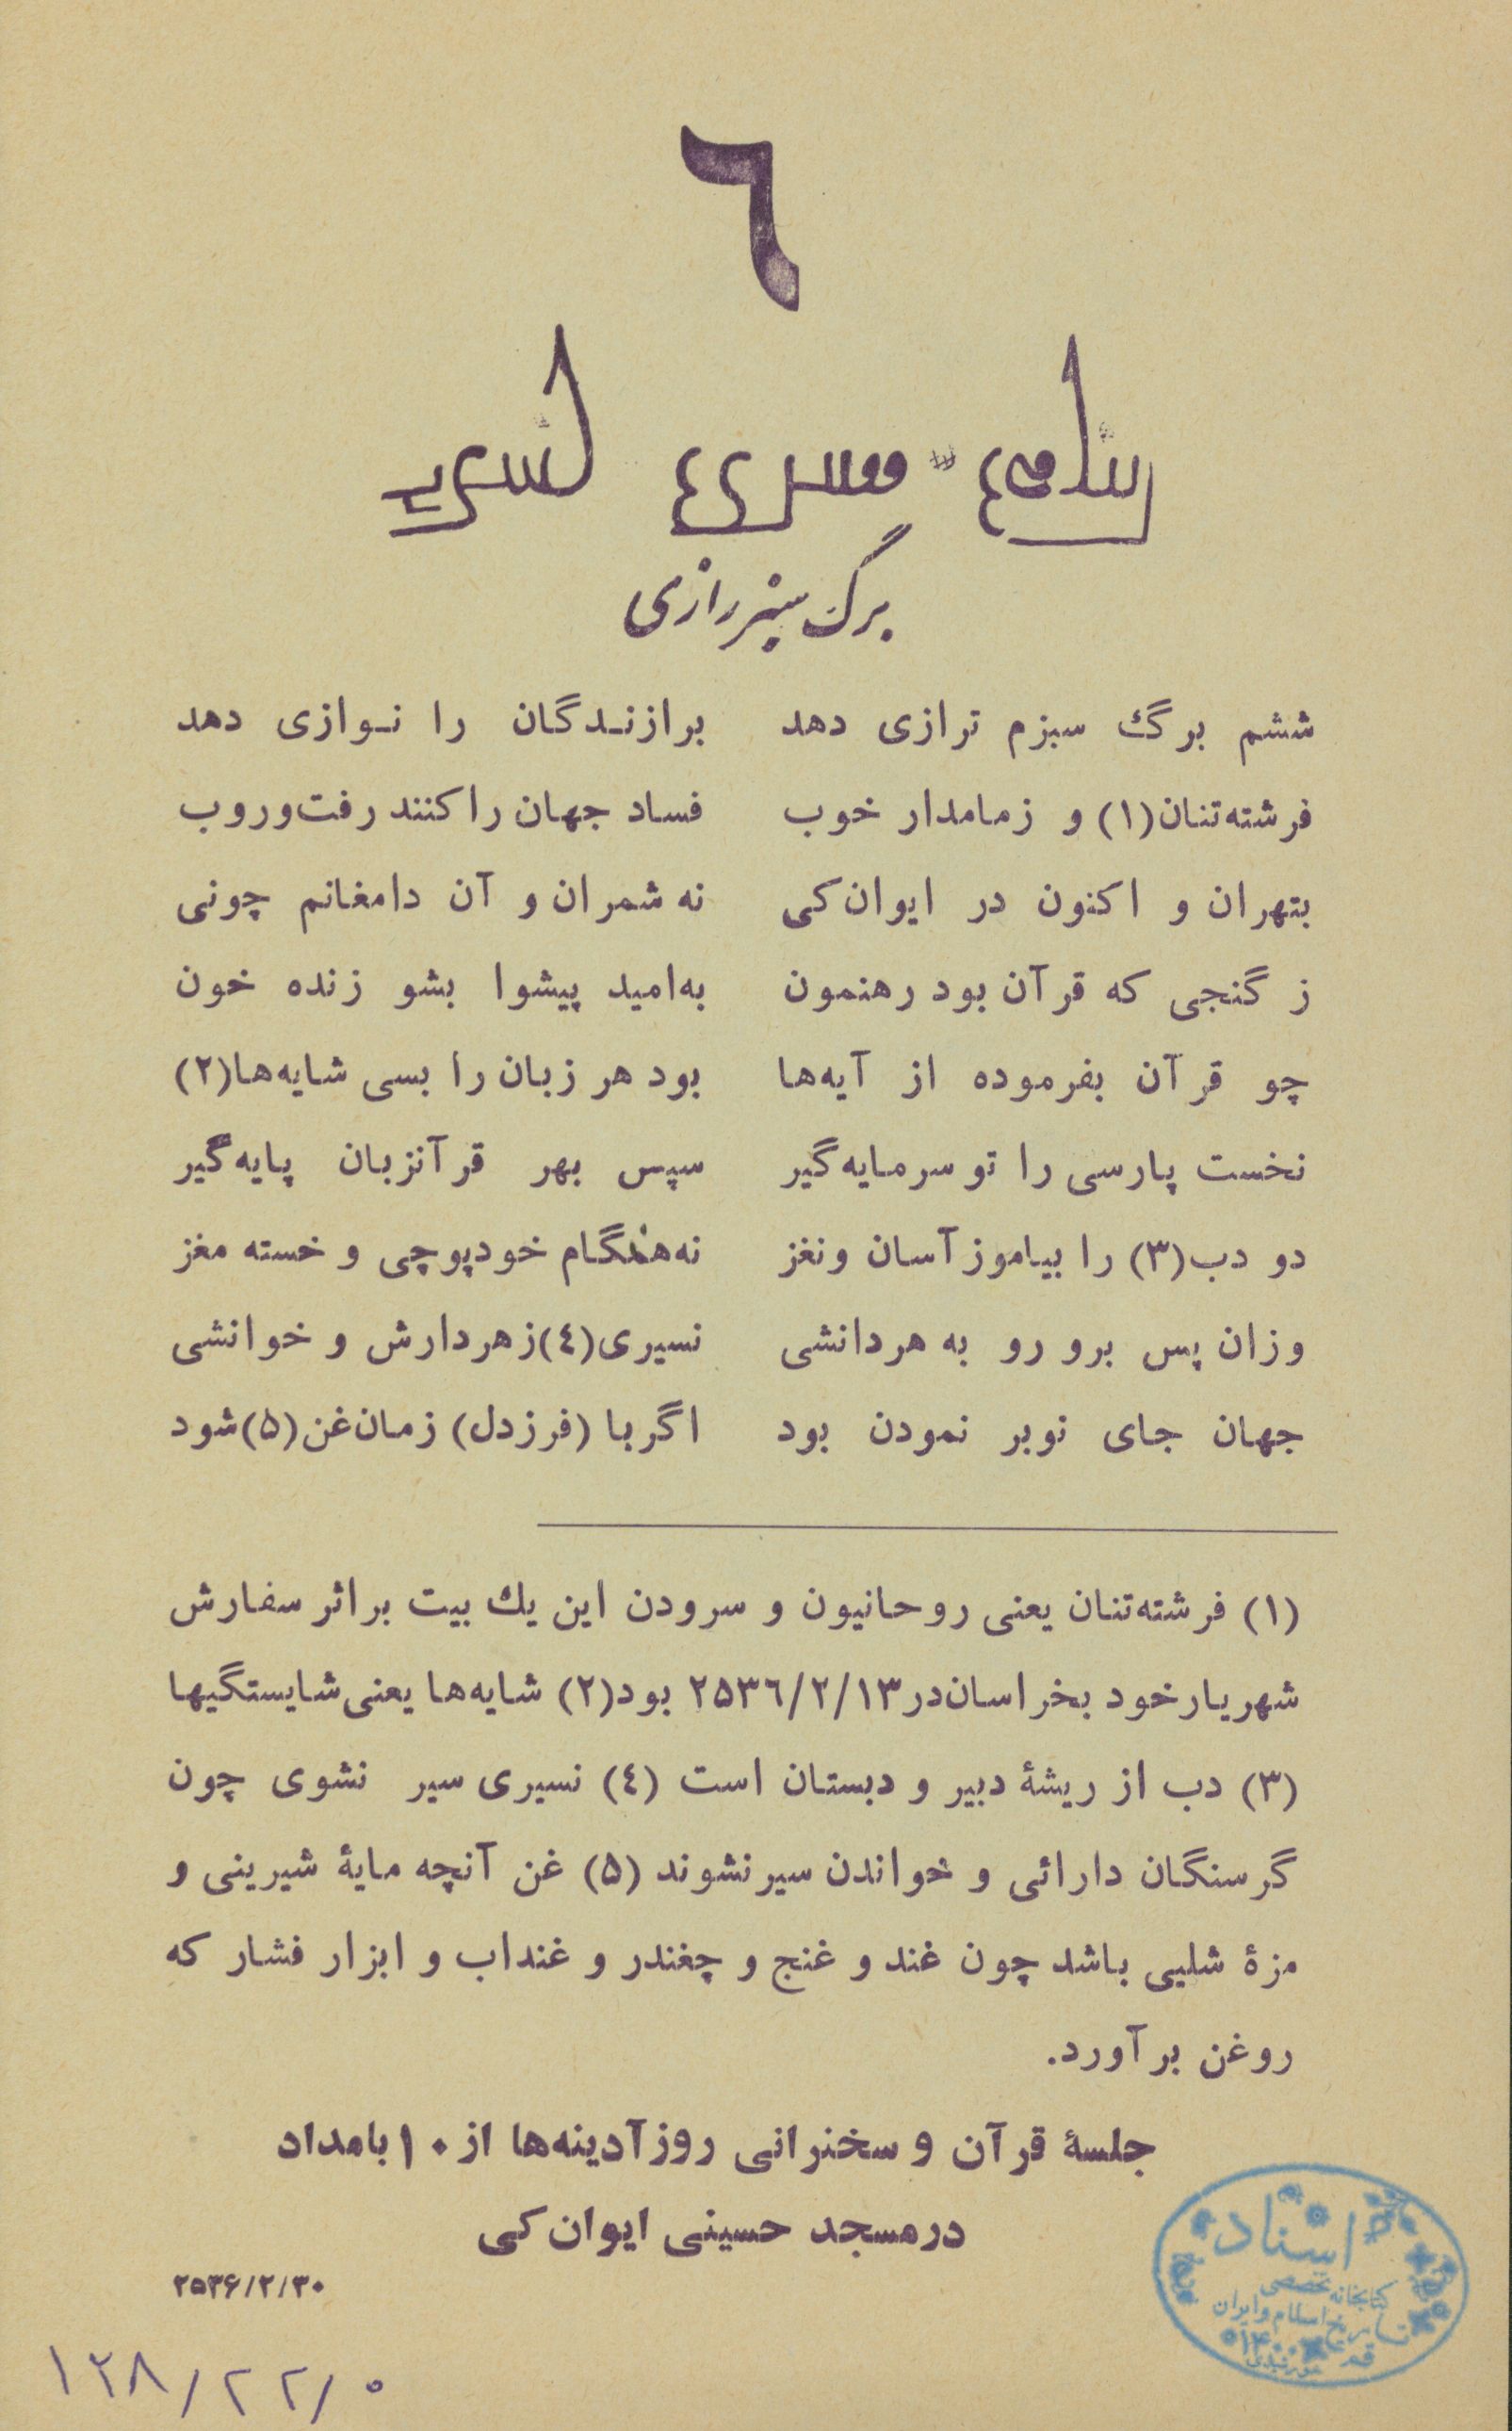 ٦
برگ سبز رازی
ششم برگ سبزم ترازی دهد    برازنـدگان را نـوازی دهد
فرشته‌تنان(۱) و زمامدار خوب    فساد جهان را کنند رفت‌وروب
بتهران و اکنون در ایوان‌کی    نه شمران و آن دامغانم چونی
ز گنجی که قرآن بود رهنمون    به‌امید پیشوا بشو زنده خون
چو قرآن بفرموده از آیه‌ها    بود هر زبان را بسی شایه‌ها(۲)
نخست پارسی را تو سرمایه‌گیر    سپس بهر قرآنزبان پایه‌گیر
دو دب(۳) را بیاموز آسان ونغز    نه‌هنگام خودپوچی و خسته مغز
وزان پس برو رو به هردانشی    نسیری(٤)زهردارش و خوانشی
جهان جای نوبر نمودن بود    اگربا (فرزدل) زمان‌غن(۵)شود
(۱) فرشته‌تنان یعنی روحانیون و سرودن این یك بیت براثر سفارش
شهریارخود بخراسان‌در۲۵۳٦/۲/۱۳ بود(۲) شایه‌ها یعنی‌شایستگیها
(۳) دب از ریشهٔ دبیر و دبستان است (٤) نسیری سیر نشوی چون
گرسنگان دارائی و خواندن سیرنشوند (۵) غن آنچه مایهٔ شیرینی و
مزهٔ شلیی باشد چون غند و غنج و چغندر و غنداب و ابزار فشار که
روغن برآورد.
جلسهٔ قرآن و سخنرانی روزآدینه‌ها از ۱۰بامداد
درمسجد حسینی ایوان‌کی
۲۵۳۶/۲/۳۰
اسناد
کتابخانه تخصصی
تاریخ اسلام و ایران
قم
۱۲۸/۲۲/۰